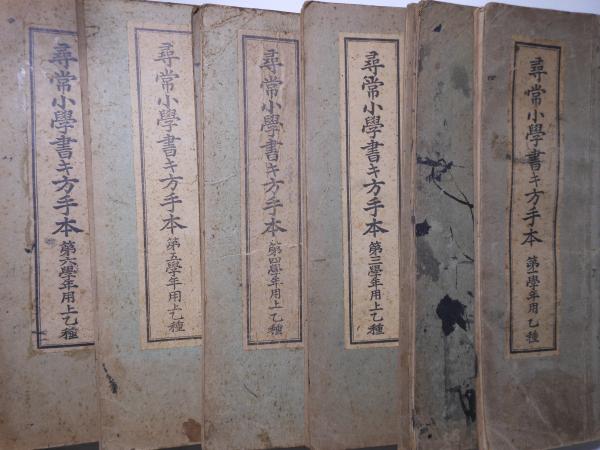 尋常小學書キ方手本
學年用 乙種
尋常小學書キ方手本
第三學年用上乙種
尋常小學書キ方手本
第四學年用上乙種
尋常小學書キ方手本
第五學年用 乙種
尋常小學書キ方手本
第六學年用上乙種